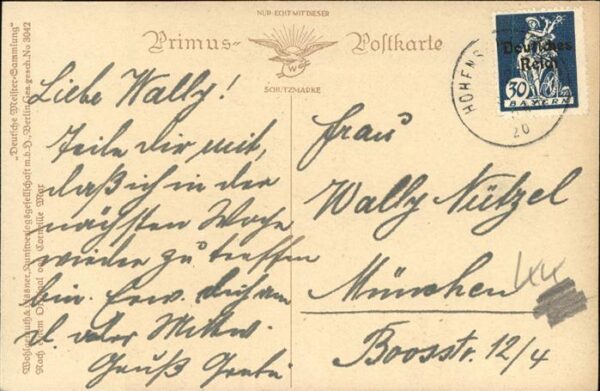 NUR ECHT MIT DIESER
Primus-Postkarte
W
SCHUTZMARKE
Deutsches
Reich
30
BAYERN
HOHENS
20
Liebe Wally!
Teile Dir mit,
daß ich in der
nächsten Woche
wieder zu treffen
bin. Erw. dich am
D. oder Mittw.
Gruß Greta
Frau
Wally Nützel
München
Boosstr. 12/4
"Deutsche Meister-Sammlung"
Kunstverlagsgesellschaft m.b.H., Berlin Ges.gesch. No 3042
Nach einem Original von Corneille Max